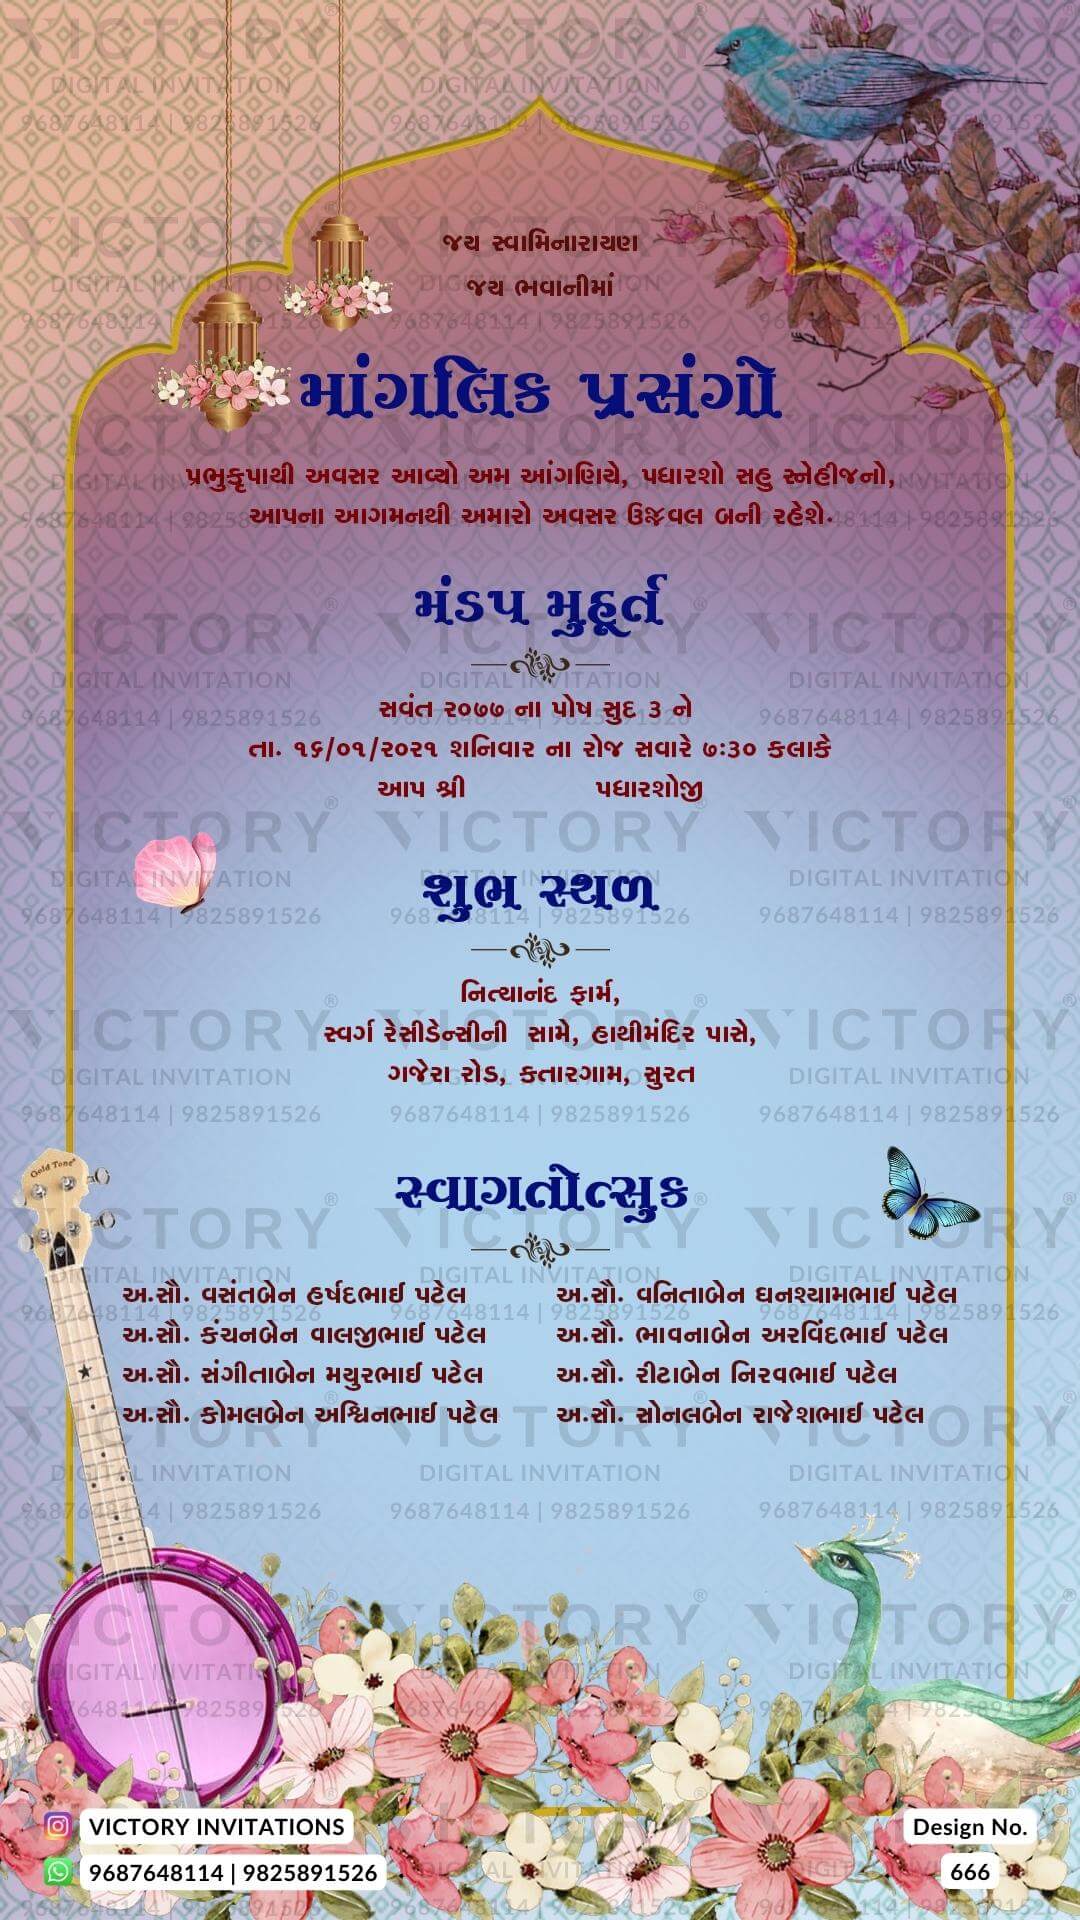 જય સ્વામિનારાયણ
જય ભવાનીમાં
માંગલિક પ્રસંગો
પ્રભુકૃપાથી અવસર આવ્યો અમ આંગણિયે, પધારશો સહુ સ્નેહીજનો,
આપના આગમનથી અમારો અવસર ઉજ્જવલ બની રહેશે.
મંડપ મુહૂર્ત
સવંત ૨૦૭૭ ના પોષ સુદ ૩ ને
તા. ૧૬/૦૧/૨૦૨૧ શનિવાર ના રોજ સવારે ૭:૩૦ કલાકે
આપ શ્રી પધારશોજી
શુભ સ્થળ
નિત્યાનંદ ફાર્મ,
સ્વર્ગ રેસીડેન્સીની સામે, હાથીમંદિર પાસે,
ગજેરા રોડ, કતારગામ, સુરત
સ્વાગતોત્સુક
અ.સૌ. વસંતબેન હર્ષદભાઈ પટેલ
અ.સૌ. કંચનબેન વાલજીભાઈ પટેલ
અ.સૌ. સંગીતાબેન મયુરભાઈ પટેલ
અ.સૌ. કોમલબેન અશ્વિનભાઈ પટેલ
અ.સૌ. વનિતાબેન ઘનશ્યામભાઈ પટેલ
અ.સૌ. ભાવનાબેન અરવિંદભાઈ પટેલ
અ.સૌ. રીટાબેન નિરવભાઈ પટેલ
અ.સૌ. સોનલબેન રાજેશભાઈ પટેલ
Gold Tone
VICTORY INVITATIONS
9687648114 | 9825891526
Design No.
666
VICTORY®
DIGITAL INVITATION
9687648114 | 9825891526